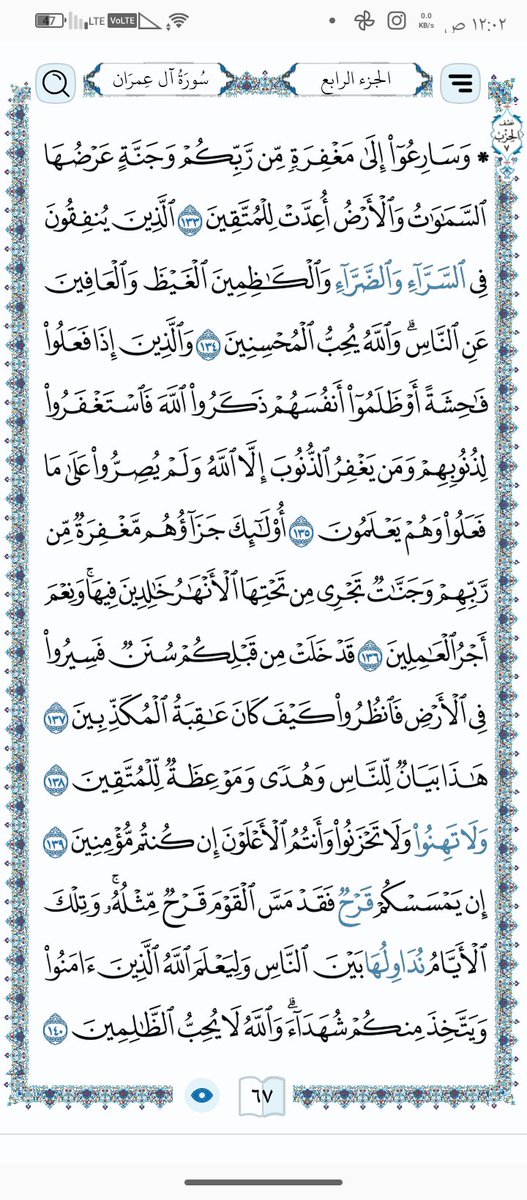 ١٢:٠٢ ص
0.0 KB/s
VoLTE LTE 47
الجزء الرابع
سُورَةُ آل عِمرَان
نصف
الحزب
٧
* وَسَارِعُوٓاْ إِلَىٰ مَغْفِرَةٖ مِّن رَّبِّكُمْ وَجَنَّةٍ عَرْضُهَا
ٱلسَّمَٰوَٰتُ وَٱلْأَرْضُ أُعِدَّتْ لِلْمُتَّقِينَ ١٣٣ ٱلَّذِينَ يُنفِقُونَ
فِي ٱلسَّرَّآءِ وَٱلضَّرَّآءِ وَٱلْكَٰظِمِينَ ٱلْغَيْظَ وَٱلْعَافِينَ
عَنِ ٱلنَّاسِۗ وَٱللَّهُ يُحِبُّ ٱلْمُحْسِنِينَ ١٣٤ وَٱلَّذِينَ إِذَا فَعَلُواْ
فَٰحِشَةً أَوْ ظَلَمُوٓاْ أَنفُسَهُمْ ذَكَرُواْ ٱللَّهَ فَٱسْتَغْفَرُواْ
لِذُنُوبِهِمْ وَمَن يَغْفِرُ ٱلذُّنُوبَ إِلَّا ٱللَّهُ وَلَمْ يُصِرُّواْ عَلَىٰ مَا
فَعَلُواْ وَهُمْ يَعْلَمُونَ ١٣٥ أُوْلَٰٓئِكَ جَزَآؤُهُم مَّغْفِرَةٞ مِّن
رَّبِّهِمْ وَجَنَّٰتٞ تَجْرِي مِن تَحْتِهَا ٱلْأَنْهَٰرُ خَٰلِدِينَ فِيهَاۚ وَنِعْمَ
أَجْرُ ٱلْعَٰمِلِينَ ١٣٦ قَدْ خَلَتْ مِن قَبْلِكُمْ سُنَنٞ فَسِيرُواْ
فِي ٱلْأَرْضِ فَٱنظُرُواْ كَيْفَ كَانَ عَٰقِبَةُ ٱلْمُكَذِّبِينَ ١٣٧
هَٰذَا بَيَانٞ لِّلنَّاسِ وَهُدٗى وَمَوْعِظَةٞ لِّلْمُتَّقِينَ ١٣٨
وَلَا تَهِنُواْ وَلَا تَحْزَنُواْ وَأَنتُمُ ٱلْأَعْلَوْنَ إِن كُنتُم مُّؤْمِنِينَ ١٣٩
إِن يَمْسَسْكُمْ قَرْحٞ فَقَدْ مَسَّ ٱلْقَوْمَ قَرْحٞ مِّثْلُهُۥۚ وَتِلْكَ
ٱلْأَيَّامُ نُدَاوِلُهَا بَيْنَ ٱلنَّاسِ وَلِيَعْلَمَ ٱللَّهُ ٱلَّذِينَ ءَامَنُواْ
وَيَتَّخِذَ مِنكُمْ شُهَدَآءَۗ وَٱللَّهُ لَا يُحِبُّ ٱلظَّٰلِمِينَ ١٤٠
٦٧